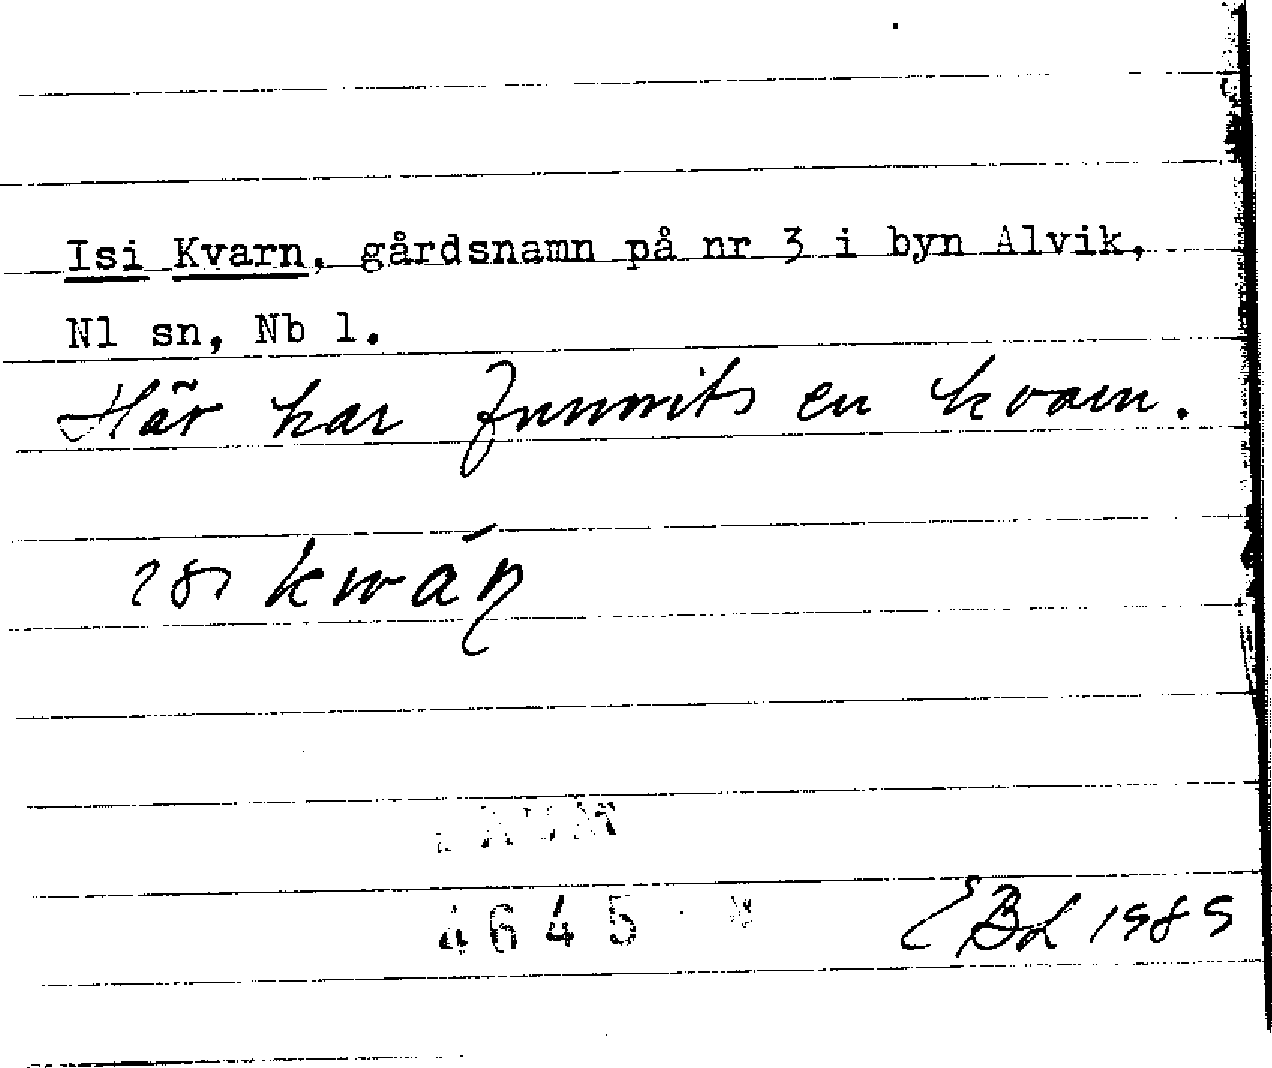 Isi Kvarn, gårdsnamn på nr 3 i byn Alvik,
Nl sn, Nb l.
Här har funnits en kvarn.
kwáṇ
4645
EBL 1989